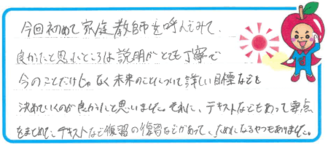 今回初めて家庭教師を呼んでみて、
良かったと思うところは説明がとても丁寧で
今のことだけじゃなく未来のことについて詳しい目標なども
決めていくのが良かったと思います。それに、テキストなどもあって要点
をまとめ、テキストなど復習の復習などがあって、ためになるやつもあります。